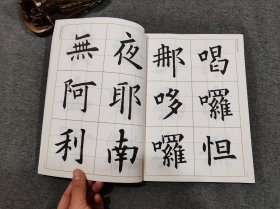 喝囉怛
那哆囉
夜耶南
無阿利